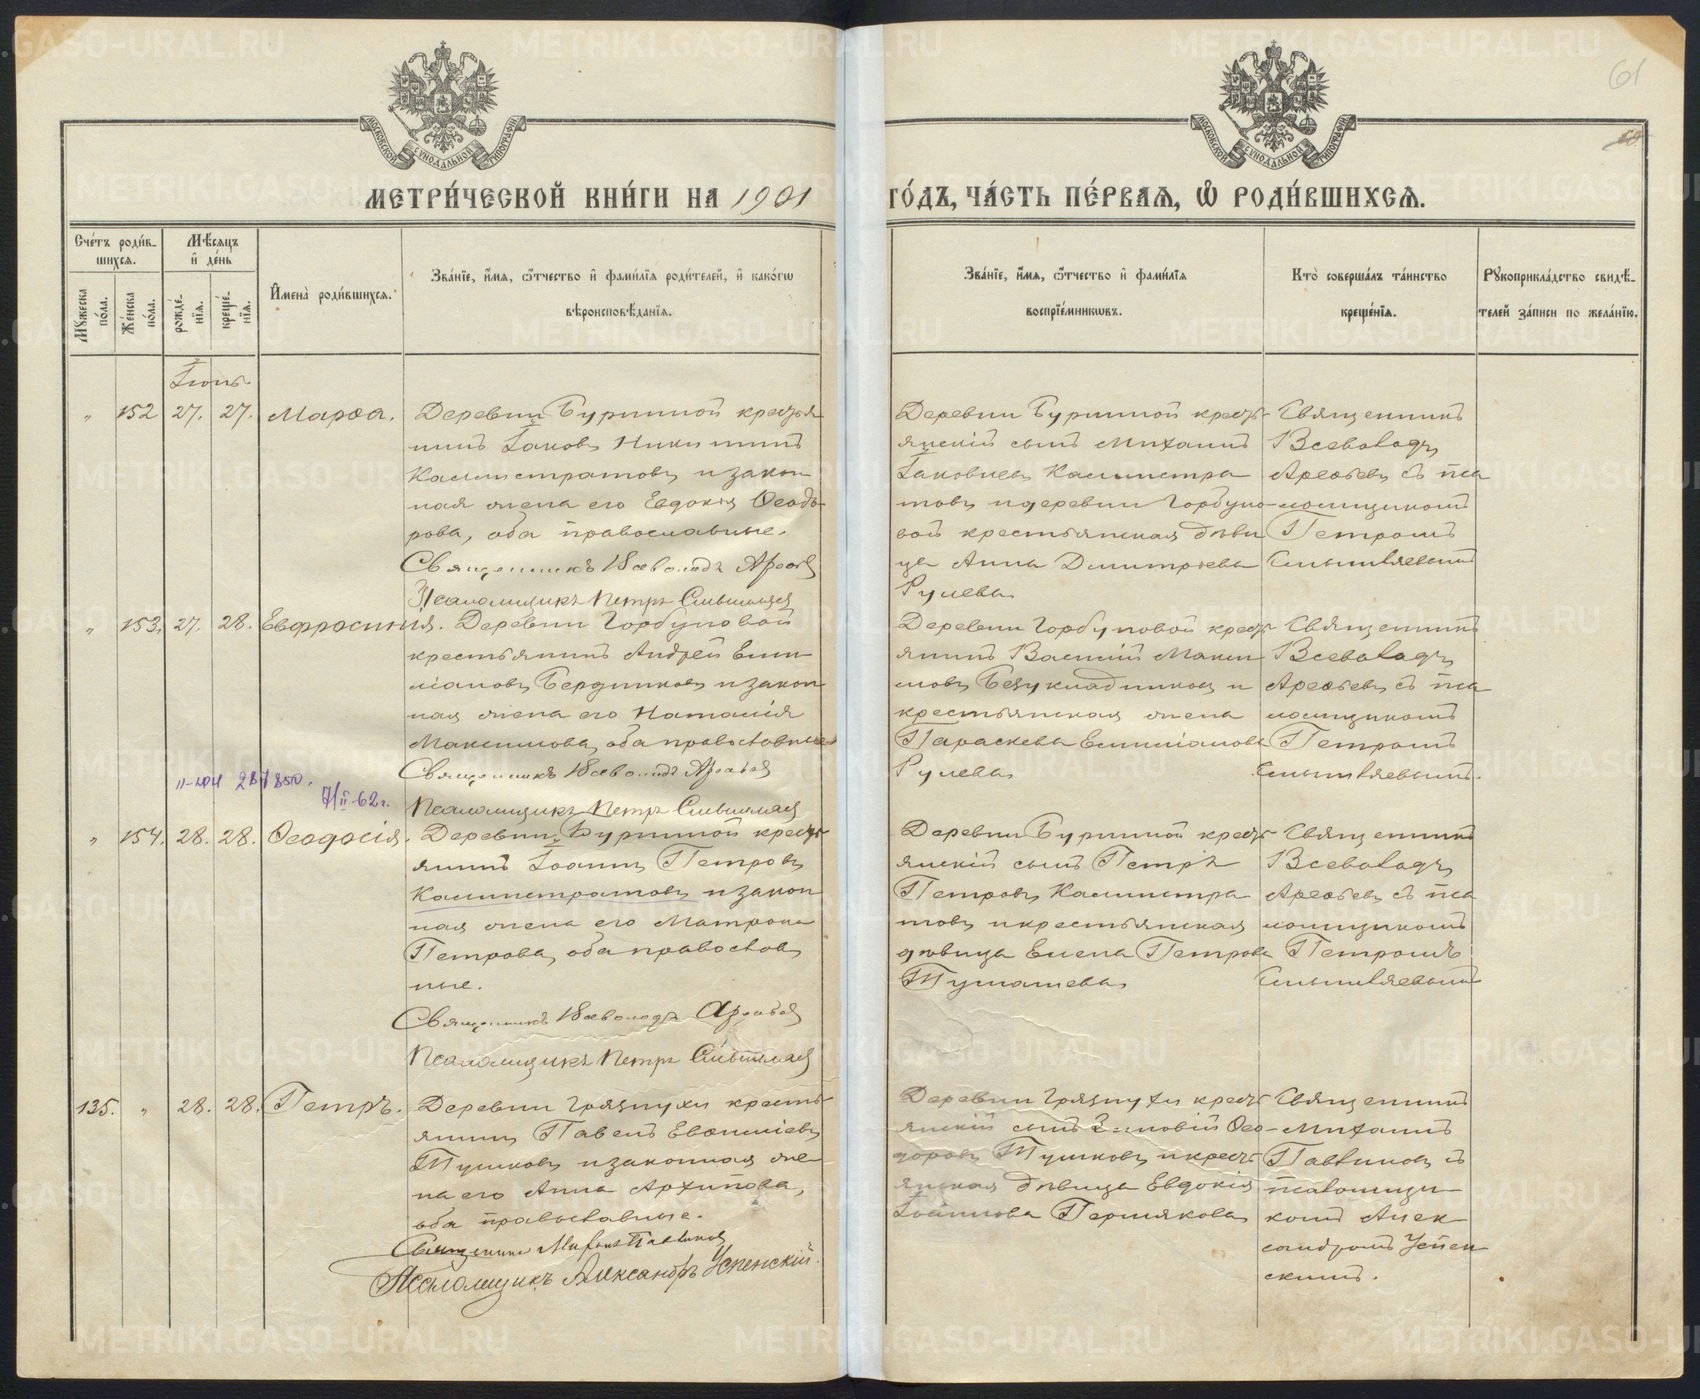 МЕТРИ́ЧЕСКОЙ КНИ́ГИ НА 1901 ГО́ДЪ, ЧА́СТЬ ПЕ́РВАЯ, Ѿ РОДИ́ВШИХСЯ.
61
60
МОСКОВСКОЙ СѴНОДАЛЬНОЙ ТИПОГРАФІИ
МОСКОВСКОЙ СѴНОДАЛЬНОЙ ТИПОГРАФІИ
Сче́тъ роди́в-
шихся.
Мꙋ́жеска по́ла.
Же́нска по́ла.
Мѣ́сяцъ
и҆ де́нь
рожде́нїя.
креще́нїя.
И҆мена̀ роди́вшихся.
Зва́нїе, и҆́мя, ѻ҆́тчество и҆ фами́лїя роди́телей, и҆ како́гѡ
вѣроисповѣ́данїя.
Зва́нїе, и҆́мя, ѻ҆́тчество и҆ фами́лїя
воспрїе́мникѡвъ.
Кто̀ соверша́лъ та́инство
креще́нїя.
Рꙋкоприкла́дство свидѣ́-
телей за́писи по жела́нїю.
Іюнь.
" 152 27. 27. Марѳа.
Деревни Буриной крестья
нинъ Іаковъ Никитинъ
Каллистратовъ и закон
ная жена его Евдокія Ѳеодо
рова, оба православные.
Священникъ Всеволодъ Арефьев
Псаломщикъ Петръ Сильвиляев
Деревни Буриной кресть-
янскій сынъ Михаилъ
Іаковлевъ Каллистра
товъ и деревни Горбуно
вой крестьянская дѣви
ца Анна Димитріева
Рулева
Священникъ
Всеволодъ
Арефьевъ съ пса
ломщикомъ
Петромъ
" 153. 27. 28. Евфросинія.
Деревни Горбуновой
крестьянинъ Андрей Емил
ліановъ Бердниковъ и закон
ная жена его Наталія
Максимова, оба православные
Священникъ Всеволодъ Арефьев
Псаломщикъ Петръ
Деревни Горбуновой кресть
янинъ Василій Макси
мовъ Безукладниковъ и
крестьянская жена
Параскева Емилліанова
Рулева
Священникъ
Всеволодъ
Арефьевъ съ пса
ломщикомъ
Петромъ
287850.
7/II-62 г.
" 154. 28. 28. Ѳеодосія.
Деревни Буриной кресть
янинъ Іоаннъ Петровъ
Каллистратовъ и закон
ная жена его Матрона
Петрова, оба православ
ные.
Священникъ Всеволодъ Арефьев
Псаломщикъ Петръ
Деревни Буриной кресть
янскій сынъ Петръ
Петровъ Каллистра
товъ и крестьянская
дѣвица Елена Петрова
Тумашева
Священникъ
Всеволодъ
Арефьевъ съ пса
ломщикомъ
Петромъ
135. " 28. 28. Петръ.
Деревни Грязнухи кресть
янинъ Павелъ Евфиміевъ
Тушковъ и законная же
на его Анна Архипова,
оба православные.
Священникъ Михаилъ Павлинов
Псаломщикъ Александръ Успенскій.
Деревни Грязнухи кресть
янскій сынъ Зиновій Ѳео-
доровъ Тушковъ и кресть
янская дѣвица Евдокія
Іоаннова Пермякова
Священникъ
Михаилъ
Павлиновъ съ
псаломщи
комъ Алек
сандромъ Успен
скимъ.
METRIKI.GASO-URAL.RU